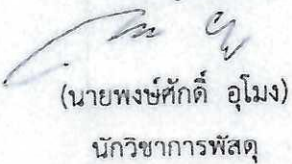 (นายพงษ์ศักดิ์ อุโมง)
นักวิชาการพัสดุ